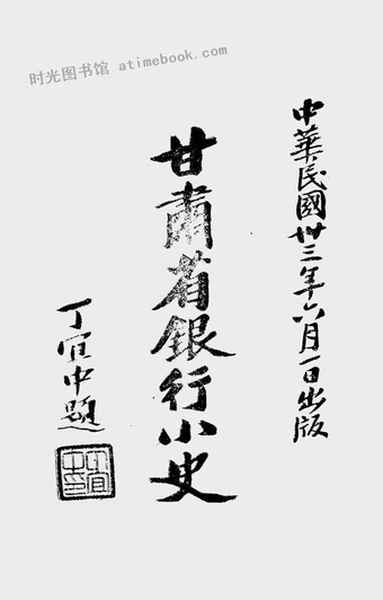 时光图书馆 atimebook.com
中華民國卅三年六月一日出版
甘肅省銀行小史
丁宜中題